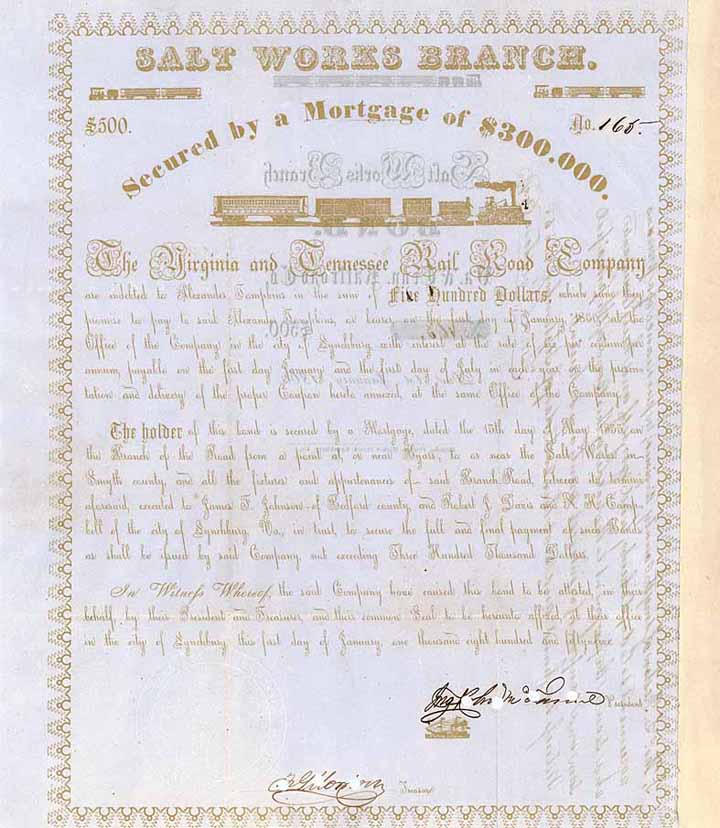 SALT WORKS BRANCH.
$500.
No. 165.
Secured by a Mortgage of $300.000.
The Virginia and Tennessee Rail Road Company
are indebted to Alexander Tompkins in the sum of Five Hundred Dollars, which sum they
promise to pay to said Alexander Tompkins, or bearer, on the first day of January at the
Office of the Company in the city of Lynchburg with interest at the rate of six per centum per
annum, payable on the first day January and the first day of July in each year on the presen-
tation and delivery of the proper Coupon hereto annexed, at the same Office of the Company.
The holder of this bond is secured by a Mortgage, dated the 15th day of May 1855, on
this Branch of the Road from a point at, or near to as near the Salt Works in
Smyth county, and all the fixtures and appurtenances of said Branch Road, between its termini
aforesaid, executed to James F. Johnson of Bedford county, and Robert J. Davis and R. H. Camp-
bell of the city of Lynchburg, Va., in trust, to secure the full and final payment of such Bonds
as shall be issued by said Company, not exceeding Three Hundred Thousand Dollars.
In Witness Whereof, the said Company have caused this bond to be attested, in their
behalf, by their President and Treasurer and their common Seal to be hereunto affixed, at their office
in the city of Lynchburg this first day of January, one thousand eight hundred and fifty-five
President
Treasurer
Salt Works Branch
BOND.
$500